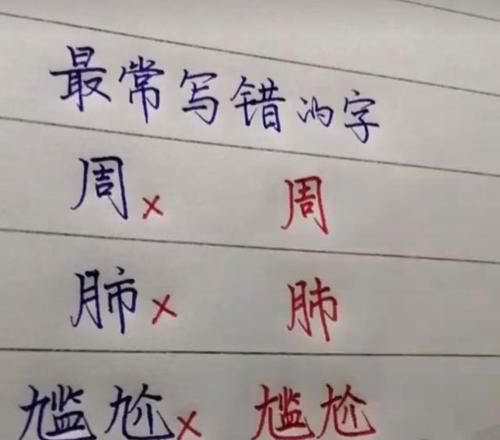 最常写错的字
周× 周
肺× 肺
尴尬× 尴尬